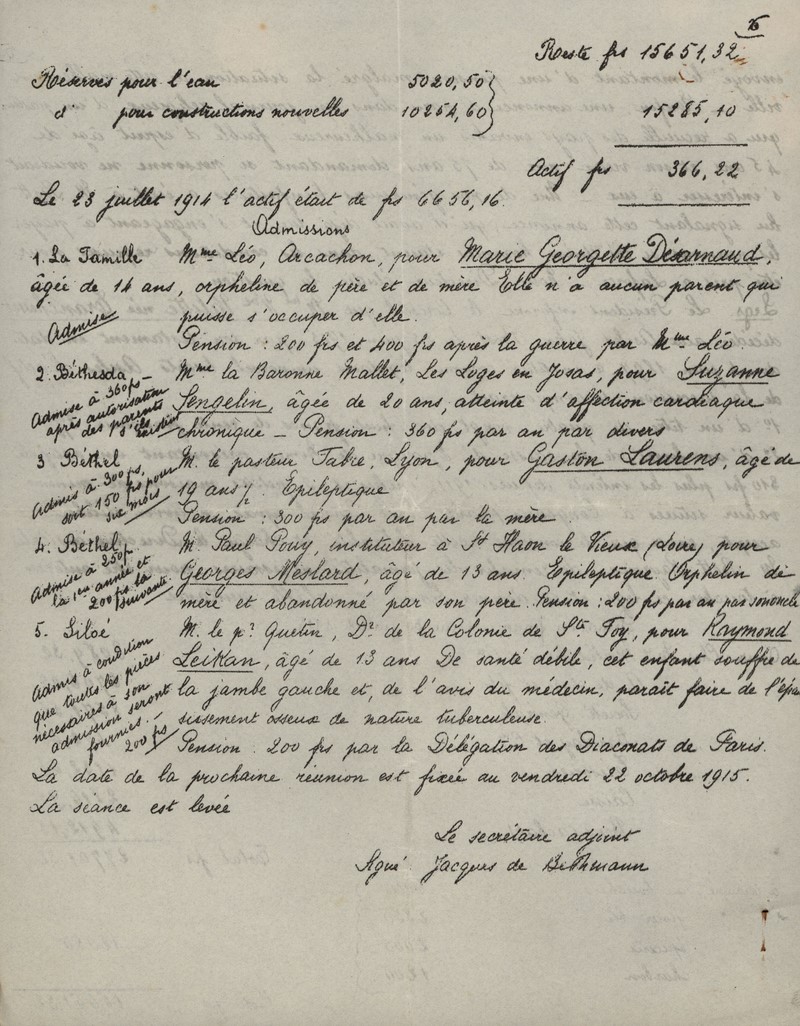 Reste frs 15651,32
Réserves pour l'eau 5020,50
d° pour constructions nouvelles 10264,60 15285,10
Actif frs 366,22
Le 23 juillet 1914 l'actif était de frs 6656,16.
Admissions
1. La Famille Mme Léo, Arcachon, pour Marie Georgette Désarnaud,
âgée de 14 ans, orpheline de père et de mère Elle n'a aucun parent qui
Admise puisse s'occuper d'elle.
Pension : 200 frs et 400 frs après la guerre par Mme Léo.
2. Béthesda Mme la Baronne Mallet, Les Loges en Josas, pour Suzanne
Admise à 360 frs –
après autorisation
des parents
s'ils existent
Sengelin, âgée de 20 ans, atteinte d'affection cardiaque
chronique – Pension : 360 frs par an par divers
3 Béthel M. le pasteur Fabre, Lyon, pour Gaston Laurens, âgé de
Admis à 300 frs,
soit 150 frs pour
six mois
19 ans ½. Epileptique
Pension : 300 frs par an par la mère.
4. Béthel M. Paul Pouy, instituteur à St Haon le Vieux (Loire) pour
Admise à 250 f.
la 1ère année et
200 frs la
suivante.
Georges Meslard, âgé de 13 ans. Epileptique Orphelin de
mère et abandonné par son père. Pension : 200 frs par an par son oncle
5. Siloé M. le pr Quetin, Dr de la Colonie de Ste Foy, pour Raymond
Admis à condition
que toutes les pièces
nécessaires à son
admission seront
fournies. –
200 frs
Leikan, âgé de 13 ans De santé débile, cet enfant souffre de
la jambe gauche et, de l'avis du médecin, paraît faire de l'épais
sissement osseux de nature tuberculeuse.
Pension : 200 frs par la Délégation des Diaconats de Paris.
La date de la prochaine réunion est fixée au vendredi 22 octobre 1915.
La séance est levée
Le secrétaire adjoint
Signé Jacques de Bethmann